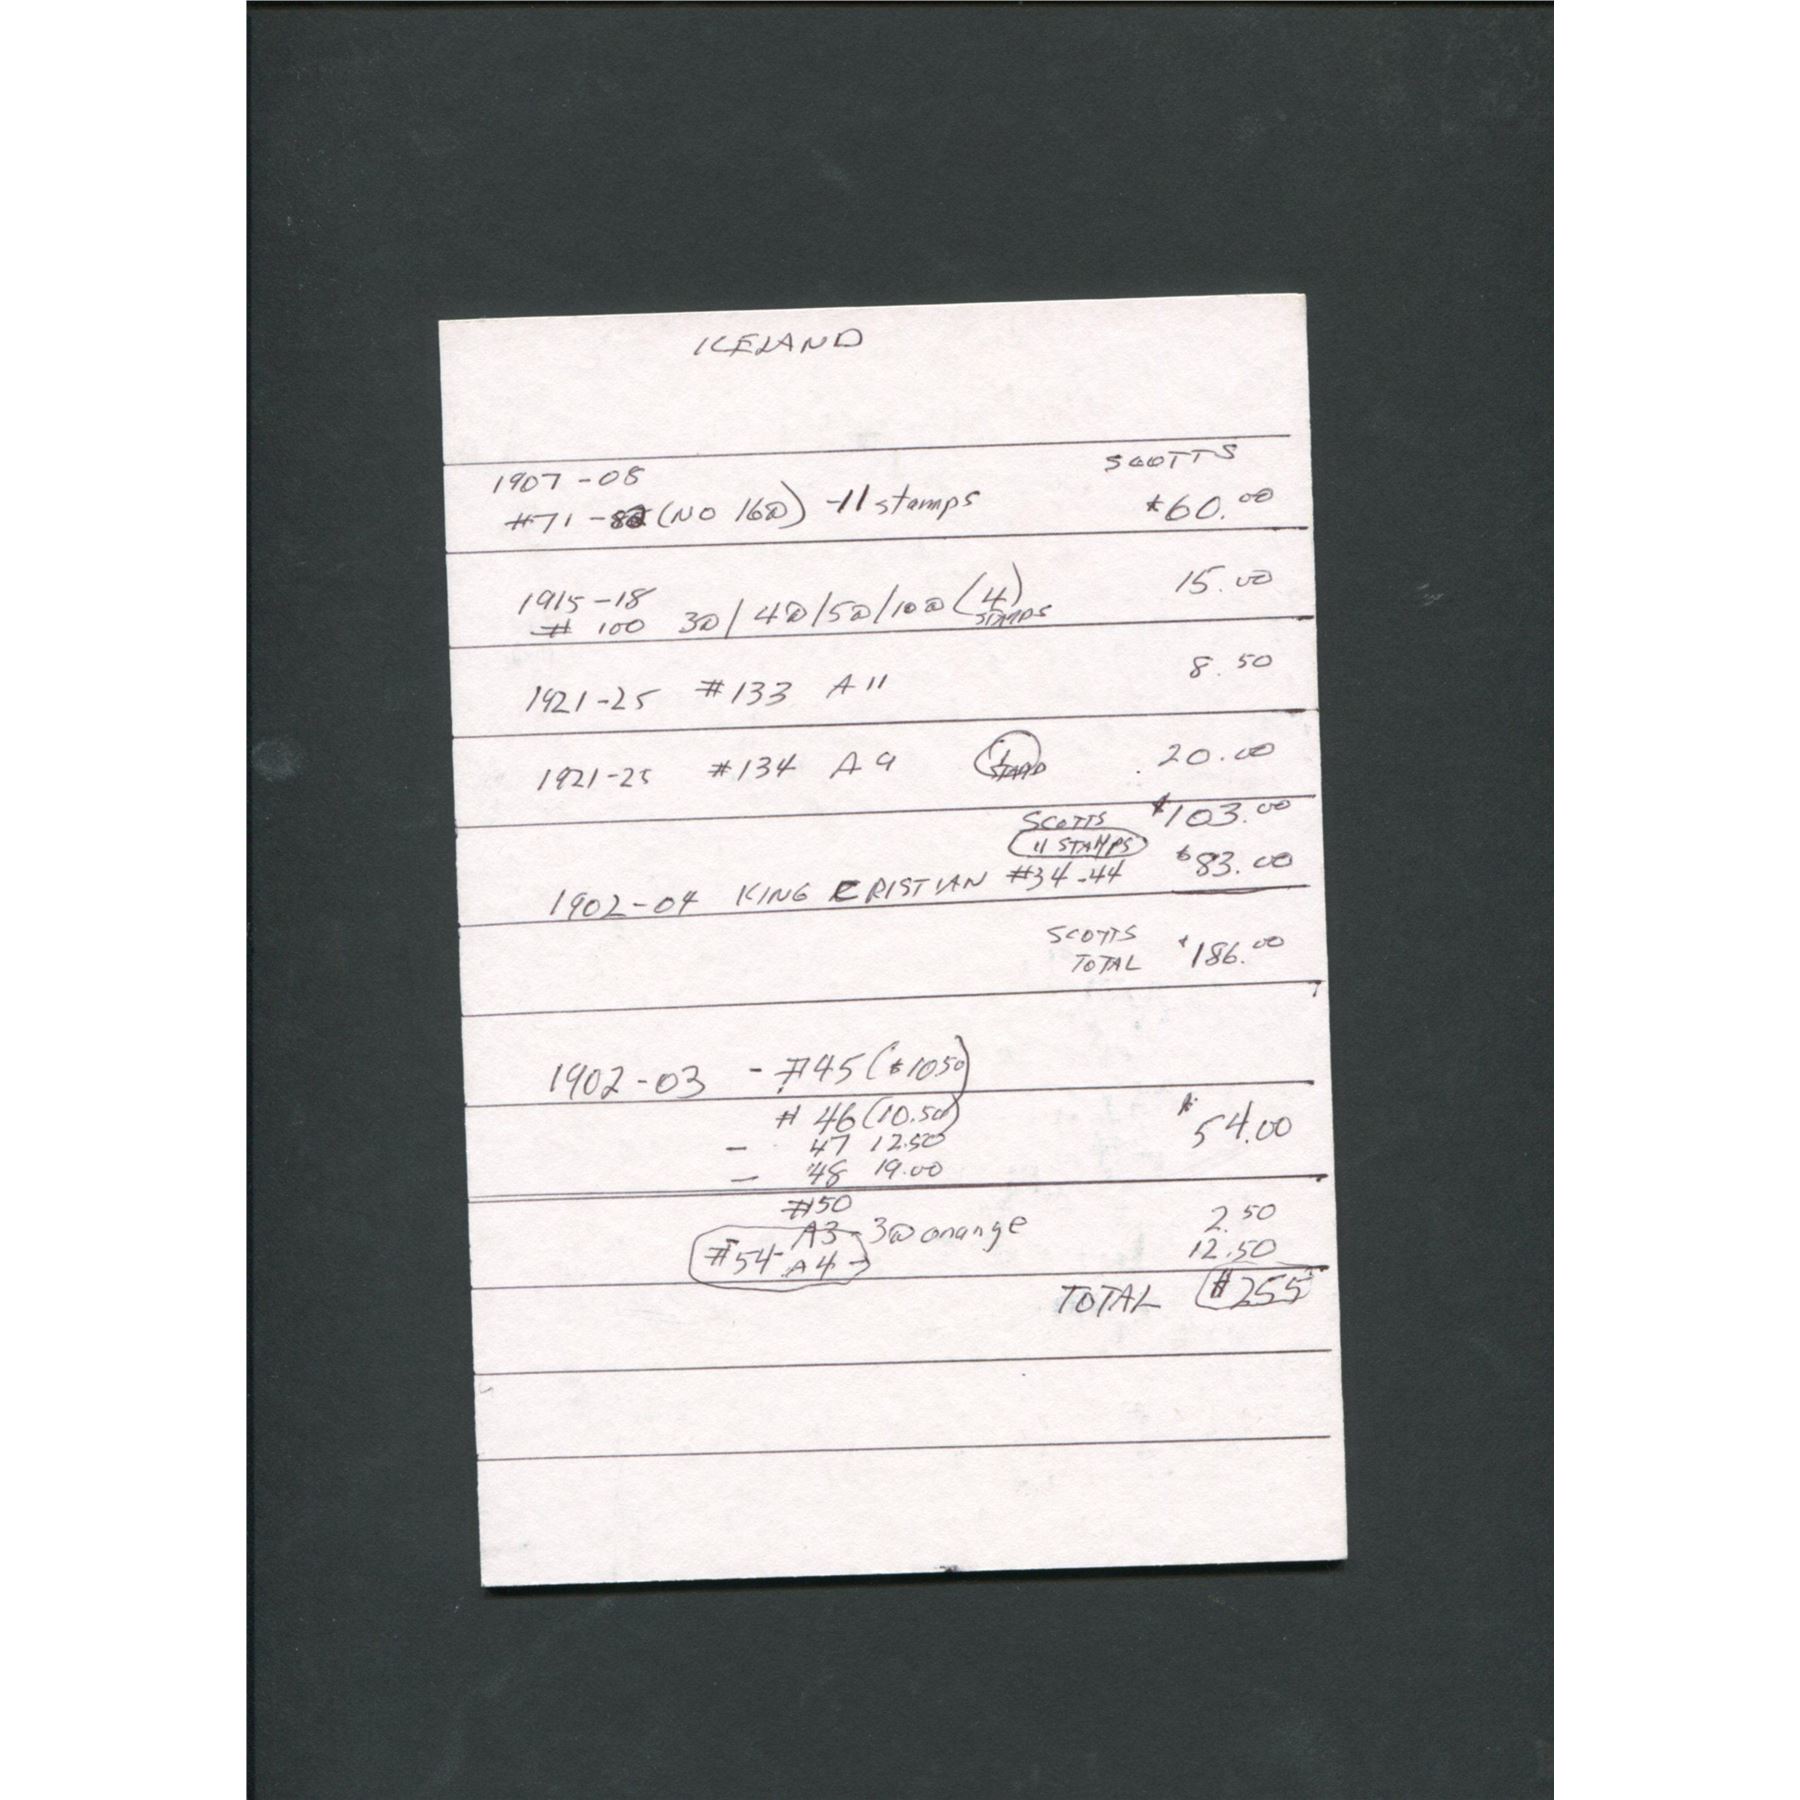 ICELAND
1907-08 SCOTTS
#71-82 (NO 16a) -11 stamps $60.00
1915-18 15.00
# 100 3a/4a/5a/10a (4) STAMPS
1921-25 #133 A11 8.50
1921-25 #134 A9 1 STAMP 20.00
SCOTTS $103.00
11 STAMPS
1902-04 KING CRISTIAN #34-44 $83.00
SCOTTS
TOTAL $186.00
1902-03 - #45 ($10.50)
# 46 (10.50) $54.00
- 47 12.50
- 48 19.00
#50
A3 - 3a orange 2.50
#54 - A4 - 12.50
TOTAL $255